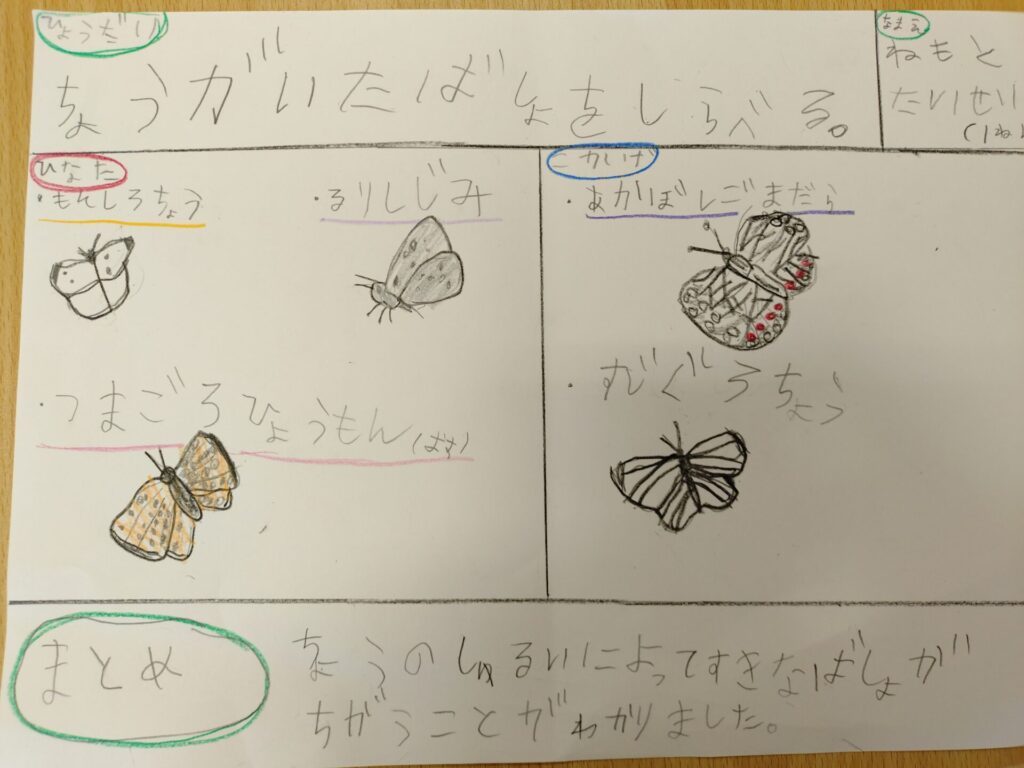 ひょうだい
なまえ
ちょうがいたばしょをしらべる。
ねもと
たいせい
(1ね
ひなた
こかげ
・もんしろちょう
・るりしじみ
・あかぼしごまだら
・つまごろひょうもん(おす)
・すぐろちょう
まとめ
ちょうのしゅるいによってすきなばしょが
ちがうことがわかりました。